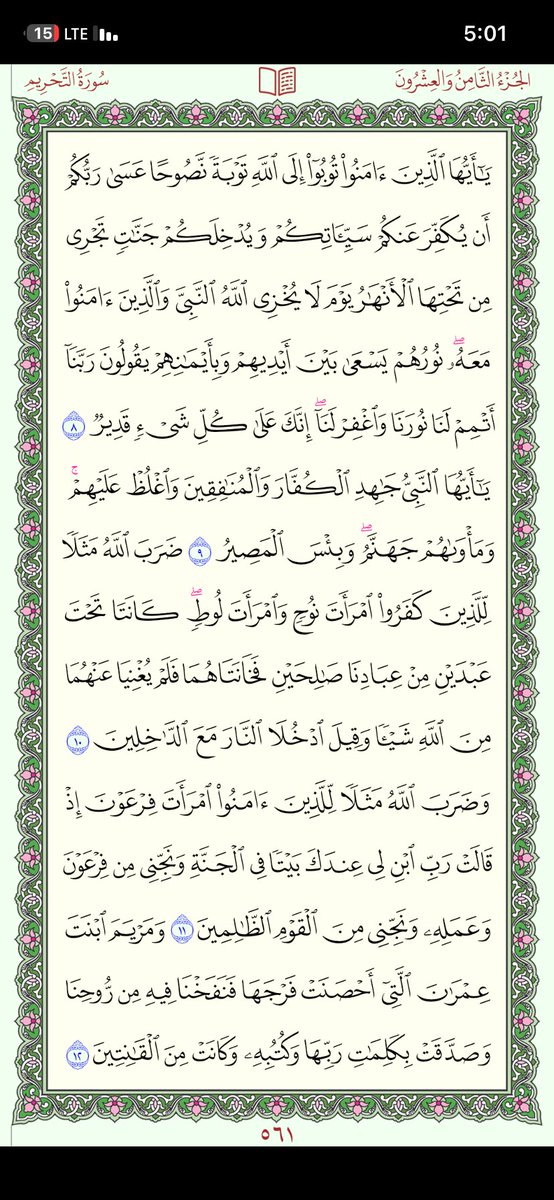 15 LTE 5:01
الجزء الثامن والعشرون سورة التحريم
يَٰٓأَيُّهَا ٱلَّذِينَ ءَامَنُواْ تُوبُوٓاْ إِلَى ٱللَّهِ تَوْبَةً نَّصُوحًا عَسَىٰ رَبُّكُمْ
أَن يُكَفِّرَ عَنكُمْ سَيِّـَٔاتِكُمْ وَيُدْخِلَكُمْ جَنَّٰتٍ تَجْرِى
مِن تَحْتِهَا ٱلْأَنْهَٰرُ يَوْمَ لَا يُخْزِى ٱللَّهُ ٱلنَّبِىَّ وَٱلَّذِينَ ءَامَنُواْ
مَعَهُۥۖ نُورُهُمْ يَسْعَىٰ بَيْنَ أَيْدِيهِمْ وَبِأَيْمَٰنِهِمْ يَقُولُونَ رَبَّنَآ
أَتْمِمْ لَنَا نُورَنَا وَٱغْفِرْ لَنَآۖ إِنَّكَ عَلَىٰ كُلِّ شَىْءٍ قَدِيرٌ ٨
يَٰٓأَيُّهَا ٱلنَّبِىُّ جَٰهِدِ ٱلْكُفَّارَ وَٱلْمُنَٰفِقِينَ وَٱغْلُظْ عَلَيْهِمْۚ
وَمَأْوَىٰهُمْ جَهَنَّمُۖ وَبِئْسَ ٱلْمَصِيرُ ٩ ضَرَبَ ٱللَّهُ مَثَلًا
لِّلَّذِينَ كَفَرُواْ ٱمْرَأَتَ نُوحٍ وَٱمْرَأَتَ لُوطٍۖ كَانَتَا تَحْتَ
عَبْدَيْنِ مِنْ عِبَادِنَا صَٰلِحَيْنِ فَخَانَتَاهُمَا فَلَمْ يُغْنِيَا عَنْهُمَا
مِنَ ٱللَّهِ شَيْـًٔا وَقِيلَ ٱدْخُلَا ٱلنَّارَ مَعَ ٱلدَّٰخِلِينَ ١٠
وَضَرَبَ ٱللَّهُ مَثَلًا لِّلَّذِينَ ءَامَنُواْ ٱمْرَأَتَ فِرْعَوْنَ إِذْ
قَالَتْ رَبِّ ٱبْنِ لِى عِندَكَ بَيْتًا فِى ٱلْجَنَّةِ وَنَجِّنِى مِن فِرْعَوْنَ
وَعَمَلِهِۦ وَنَجِّنِى مِنَ ٱلْقَوْمِ ٱلظَّٰلِمِينَ ١١ وَمَرْيَمَ ٱبْنَتَ
عِمْرَٰنَ ٱلَّتِىٓ أَحْصَنَتْ فَرْجَهَا فَنَفَخْنَا فِيهِ مِن رُّوحِنَا
وَصَدَّقَتْ بِكَلِمَٰتِ رَبِّهَا وَكُتُبِهِۦ وَكَانَتْ مِنَ ٱلْقَٰنِتِينَ ١٢
٥٦١